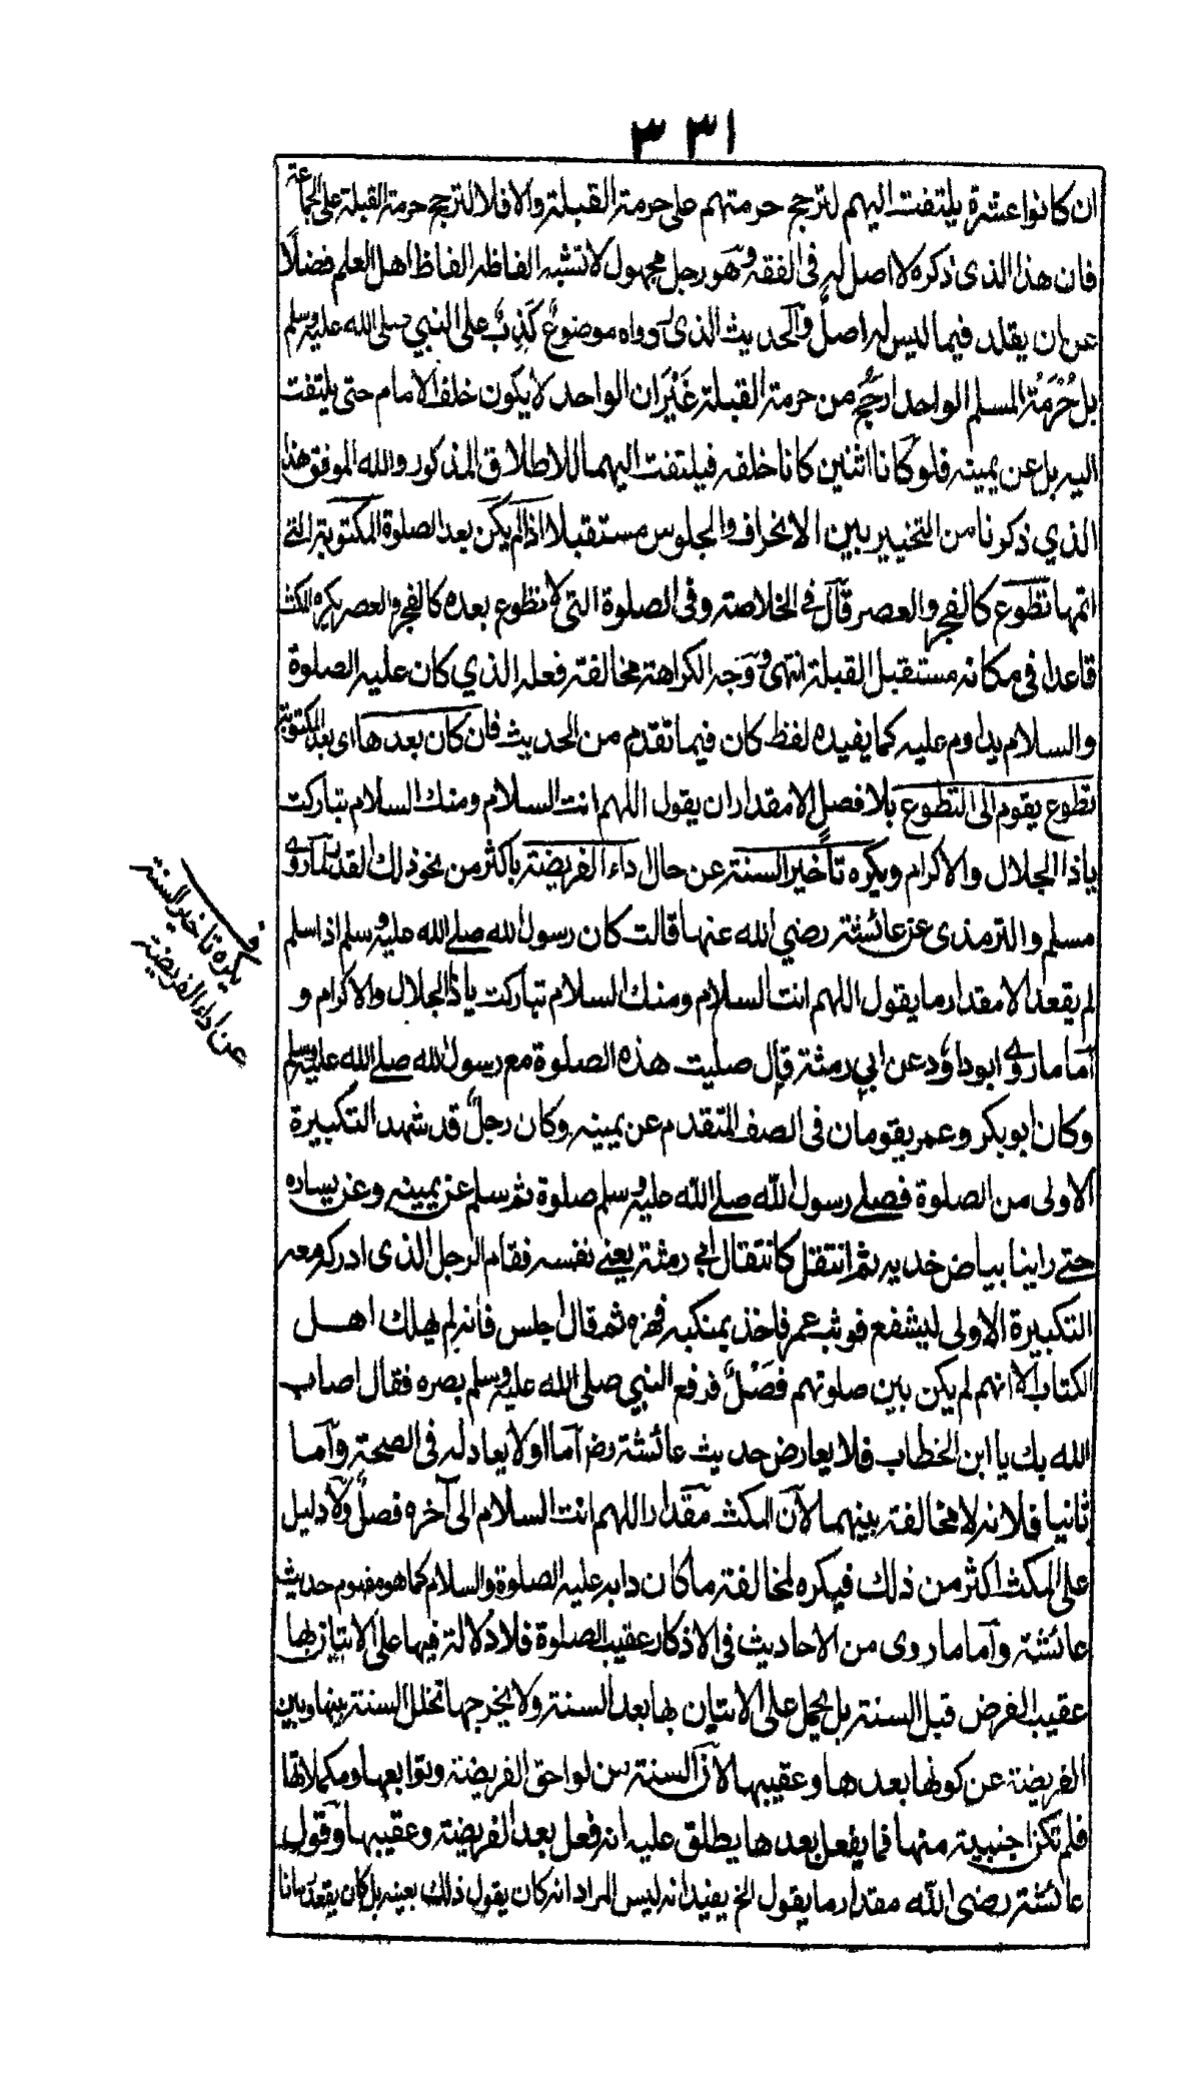 ٣٣١
ان كانوا عشرة يلتفت اليهم لترجح حرمتهم على حرمة القبلة والا فلا لترجح حرمة القبلة على الجماعة
فان هذا الذى ذكره لا اصل له فى الفقه وهو رجل مجهول لا تشبه الفاظه الفاظ اهل العلم فضلًا
عن ان يقلد فيما ليس له اصلٌ والحديث الذى رواه موضوعٌ كَذِبٌ على النبي صلى الله عليه وسلم
بل حُرْمَةُ المسلم الواحد ارجَحُ من حرمة القبلة غَيْرَ ان الواحد لا يكون خلف الامام حتى يلتفت
اليه بل عن يمينه فلو كانا اثنين كانا خلفه فيلتفت اليهما للاطلاق المذكور والله الموفق هذا
الذي ذكرنا من التخيير بين الانحراف والجلوس مستقبلا اذا لم يكن بعد الصلوة المكتوبة التي
اتمها تطوع كالفجر والعصر قال في الخلاصة وفى الصلوة التى لا تطوع بعده كالفجر والعصر يكره المكث
قاعدا فى مكانه مستقبل القبلة انتهى ووجه الكراهة مخالفة فعله الذي كان عليه الصلوة
والسلام يداوم عليه كما يفيده لفظ كان فيما تقدم من الحديث فان كان بعدها اى بعد المكتوبة
تطوع يقوم الى التطوع بلا فصلٍ الا مقدار ان يقول اللهم انت السلام ومنك السلام تباركت
ياذا الجلال والاكرام ويكره تاخير السنة عن حال داء الفريضة باكثر من نحو ذلك القدر لما روى
مسلم والترمذى عن عائشة رضي الله عنها قالت كان رسول الله صلى الله عليه وسلم اذا سلم
لم يقعد الا مقدار ما يقول اللهم انت السلام ومنك السلام تباركت ياذا الجلال والاكرام و
اما ما روى ابو داؤد عن ابي رمثة قال صليت هذه الصلوة مع رسول الله صلى الله عليه وسلم
وكان ابو بكر وعمر يقومان فى الصف المتقدم عن يمينه وكان رجلٌ قد شهد التكبيرة
الاولى من الصلوة فصلى رسول الله صلى الله عليه وسلم صلوة ثم سلم عن يمينه وعن يساره
حتى راينا بياض خديه ثم انتقل كانتقال ابي رمثة يعنى نفسه فقام الرجل الذى ادرك معه
التكبيرة الاولى ليشفع فوثب عمر فاخذ بمنكبه فهزه ثم قال اجلس فانه لم يهلك اهل
الكتاب الا انهم لم يكن بين صلوتهم فصْلٌ فرفع النبي صلى الله عليه وسلم بصره فقال اصاب
الله بك يا ابن الخطاب فلا يعارض حديث عائشة رض اما اولا يعادله فى الصحة واما
ثانيا فلانه لا مخالفة بينهما لان المكث مقدار اللهم انت السلام الى آخره فصلٌ ولا دليل
على المكث اكثر من ذلك فيكره لمخالفة ما كان دابه عليه الصلوة والسلام كما هو مفهوم حديث
عائشة واما ما روى من الاحاديث فى الاذكار عقيب الصلوة فلا دلالة فيها على الاتيان بها
عقيب الفرض قبل السنة بل يحمل على الاتيان بها بعد السنة ولا يخرجها تخلل السنة بينها وبين
الفريضة عن كونها بعدها وعقيبها لان السنة من لواحق الفريضة وتوابعها ومكملاتها
فلم تكن اجنبية منها فما يفعل بعدها يطلق عليه انه فعل بعد الفريضة وعقيبها وقول
عائشة رضى الله مقدار ما يقول الخ يفيد انه ليس المراد انه كان يقول ذلك بعينه بل كان يقعد زمانا
يكره تاخير السنة
عن اداء الفريضة